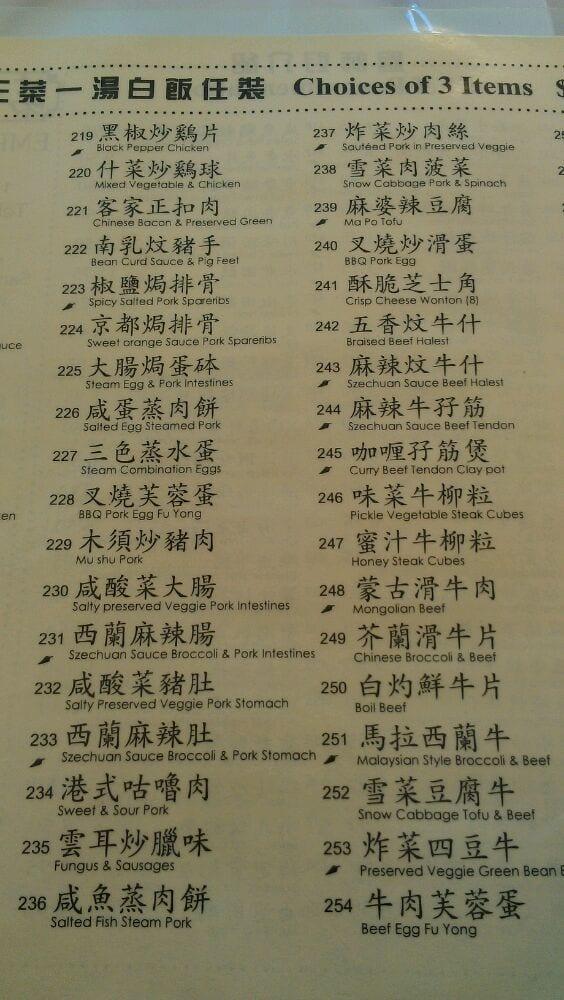 菜一湯白飯任裝 Choices of 3 Items $
219 黑椒炒鷄片
Black Pepper Chicken
220 什菜炒鷄球
Mixed Vegetable & Chicken
221 客家正扣肉
Chinese Bacon & Preserved Green
222 南乳炆豬手
Bean Curd Sauce & Pig Feet
223 椒鹽焗排骨
Spicy Salted Pork Spareribs
224 京都焗排骨
Sweet orange Sauce Pork Spareribs
225 大腸焗蛋砵
Steam Egg & Pork Intestines
226 咸蛋蒸肉餅
Salted Egg Steamed Pork
227 三色蒸水蛋
Steam Combination Eggs
228 叉燒芙蓉蛋
BBQ Pork Egg Fu Yong
229 木須炒豬肉
Mu shu Pork
230 咸酸菜大腸
Salty preserved Veggie Pork Intestines
231 西蘭麻辣腸
Szechuan Sauce Broccoli & Pork Intestines
232 咸酸菜豬肚
Salty Preserved Veggie Pork Stomach
233 西蘭麻辣肚
Szechuan Sauce Broccoli & Pork Stomach
234 港式咕嚕肉
Sweet & Sour Pork
235 雲耳炒臘味
Fungus & Sausages
236 咸魚蒸肉餅
Salted Fish Steam Pork
237 炸菜炒肉絲
Sautéed Pork in Preserved Veggie
238 雪菜肉菠菜
Snow Cabbage Pork & Spinach
239 麻婆辣豆腐
Ma Po Tofu
240 叉燒炒滑蛋
BBQ Pork Egg
241 酥脆芝士角
Crisp Cheese Wonton (8)
242 五香炆牛什
Braised Beef Halest
243 麻辣炆牛什
Szechuan Sauce Beef Halest
244 麻辣牛孖筋
Szechuan Sauce Beef Tendon
245 咖喱孖筋煲
Curry Beef Tendon Clay pot
246 味菜牛柳粒
Pickle Vegetable Steak Cubes
247 蜜汁牛柳粒
Honey Steak Cubes
248 蒙古滑牛肉
Mongolian Beef
249 芥蘭滑牛片
Chinese Broccoli & Beef
250 白灼鮮牛片
Boil Beef
251 馬拉西蘭牛
Malaysian Style Broccoli & Beef
252 雪菜豆腐牛
Snow Cabbage Tofu & Beef
253 炸菜四豆牛
Preserved Veggie Green Bean
254 牛肉芙蓉蛋
Beef Egg Fu Yong